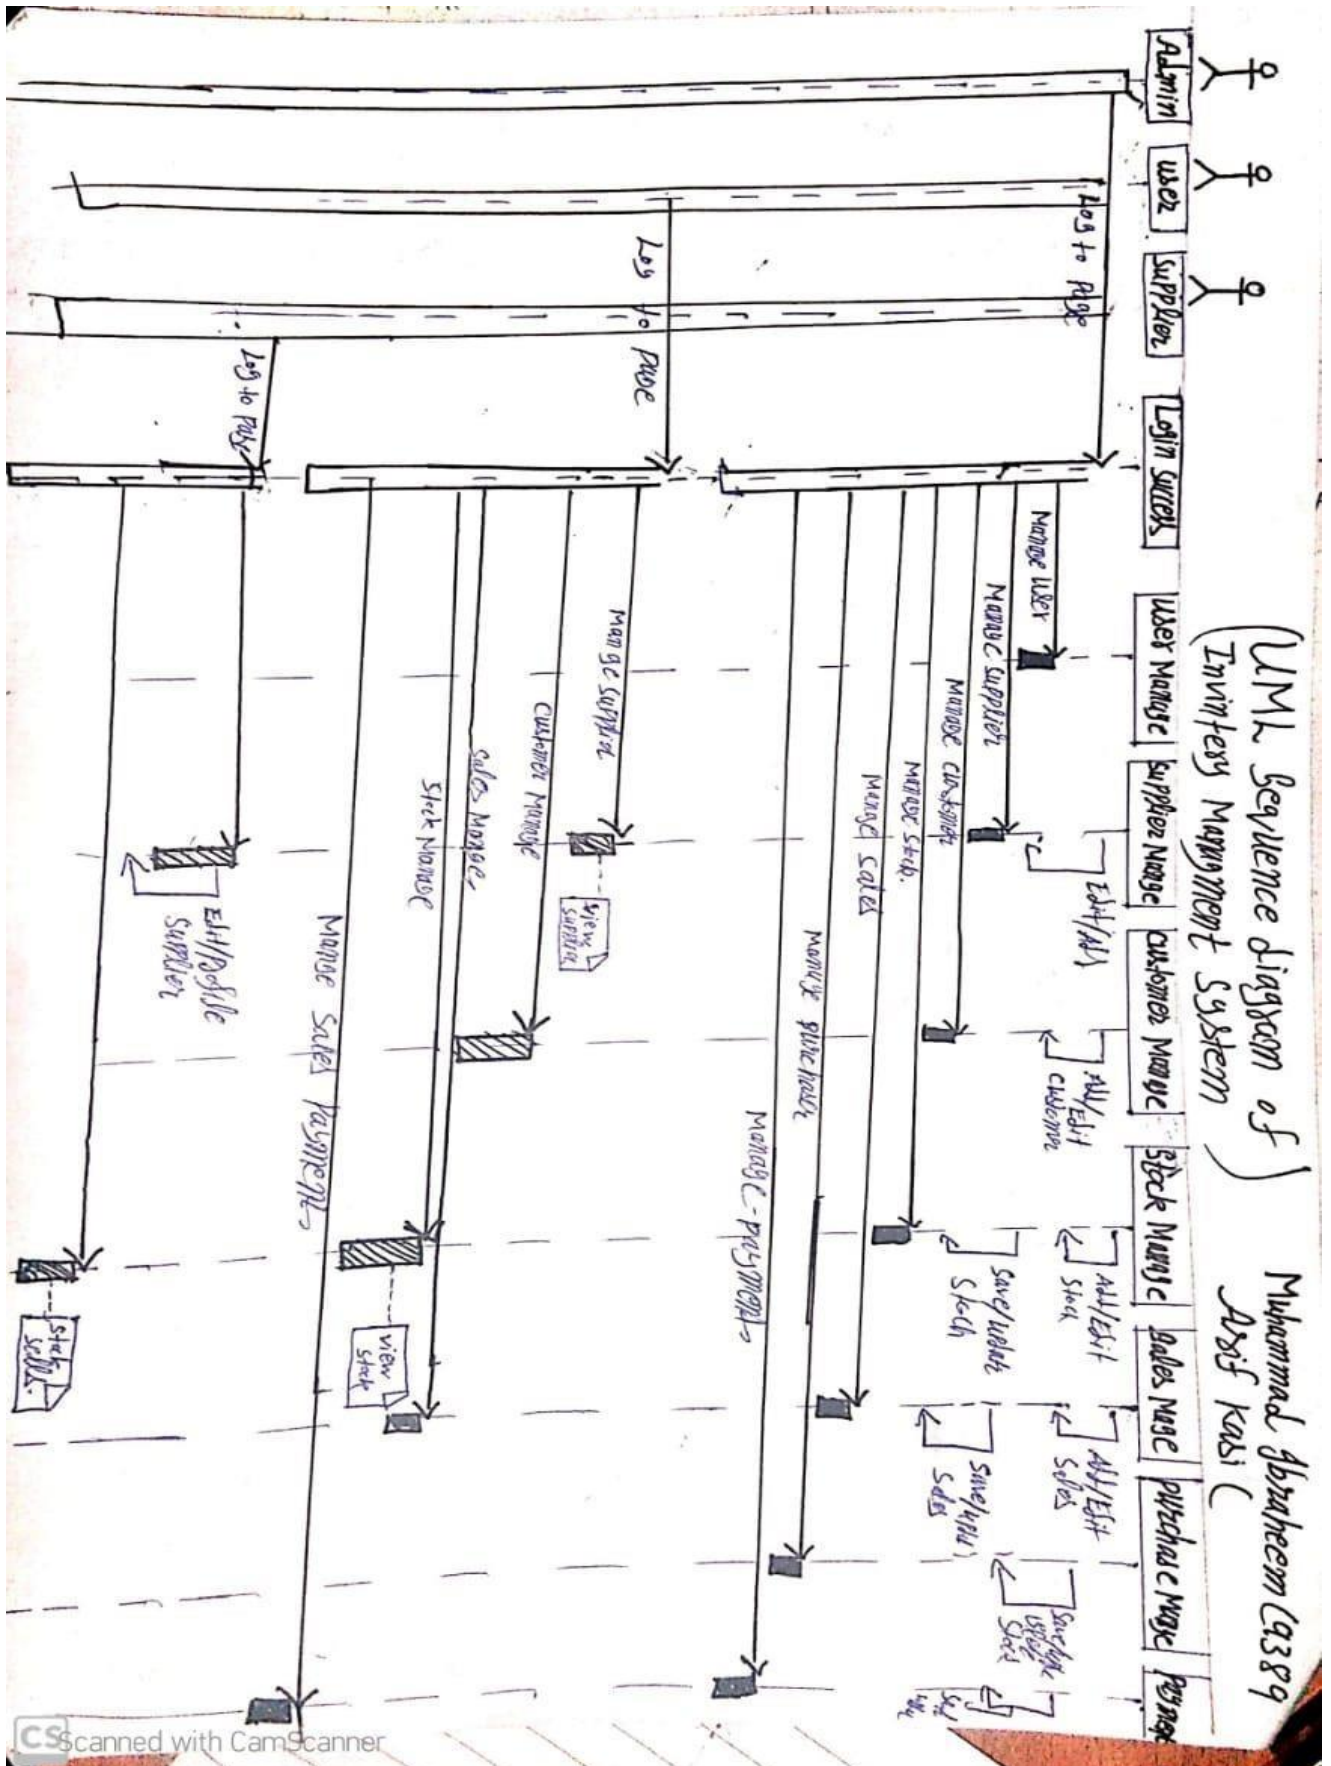 Muhammad Ibraheem (9389
Asif Kasi (
(UML Sequence diagram of
Invintery Managment System)
Admin
user
Supplier
Login Success
User Manage
Supplier Mange
Customer Manage
Stock Manage
Sales Mage
Purchase Mage
Log to Page
Log to page
Log to Page
Manage User
Manage supplier
Manage customer
Manage Stock.
Mange Sales
Manage purchase
Manage-payment
Edit/Add
Add/Edit
Customer
Add/Edit
Stock
Save/update
Stock
Add/Edit
Sales
Sales
Mange supplier
Customer Manage
Sales Manage
Stock Manage
Mange Sales Payment
view
supplier
view
stock
Edit/Profile
Supplier
CS Scanned with CamScanner